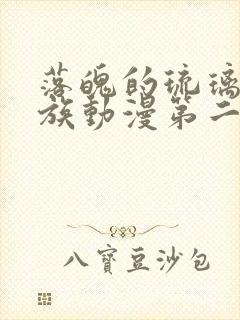 落魄的琉璃
族動漫第二
八寶豆沙包